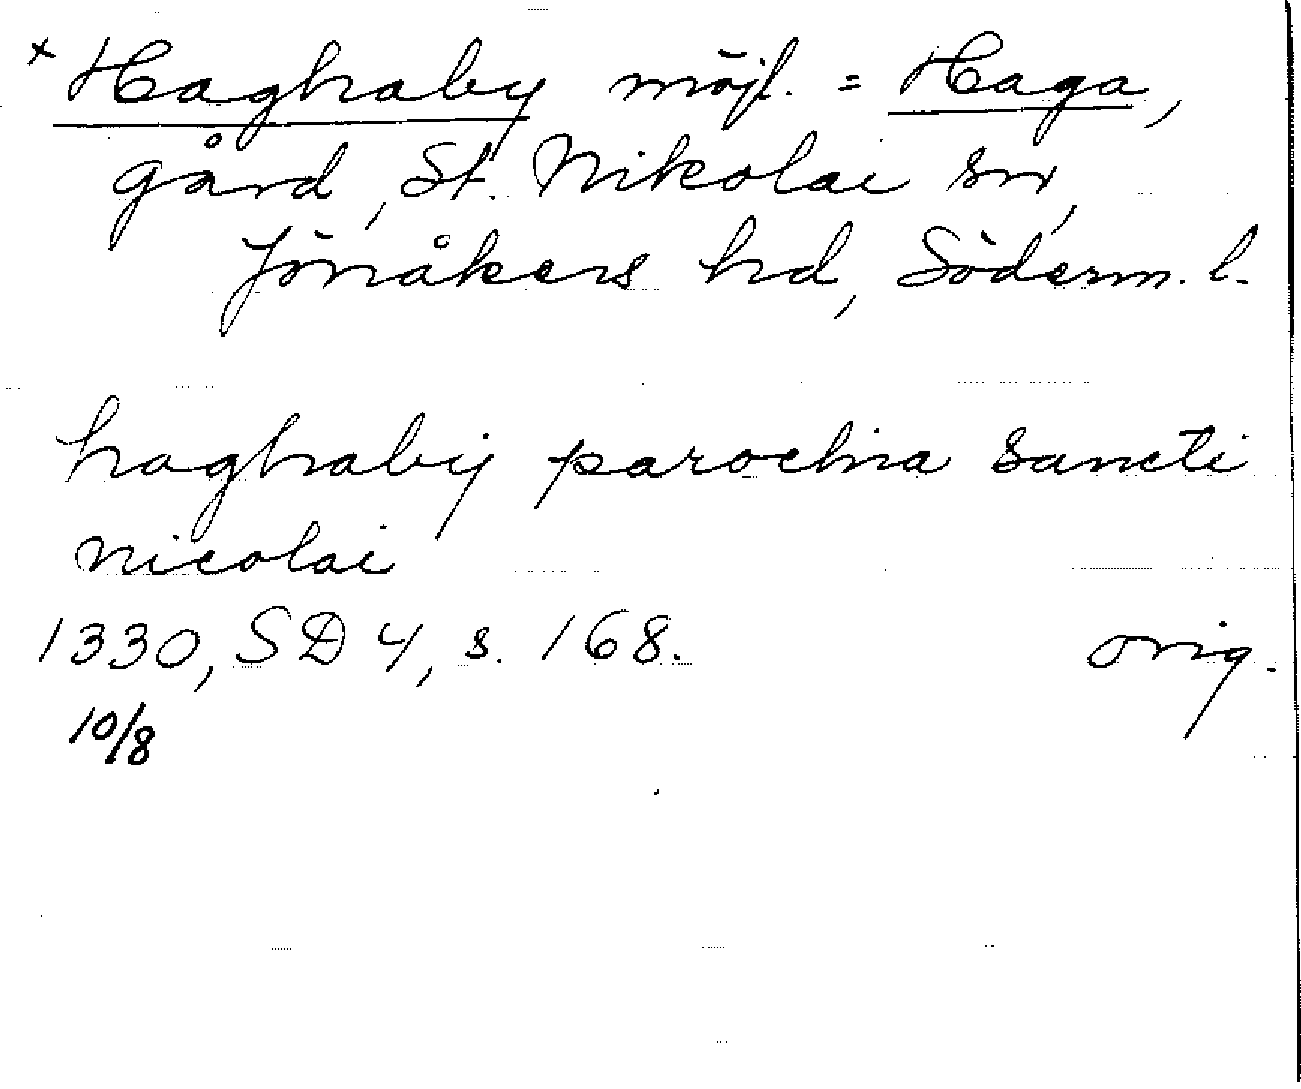 × Haghaby möjl. = Haga,
gård, St. Nikolai sn,
Jönåkers hd, Söderm. l.
haghabij parochia sancti
nicolai
1330, SD 4, s. 168. orig.
10/8